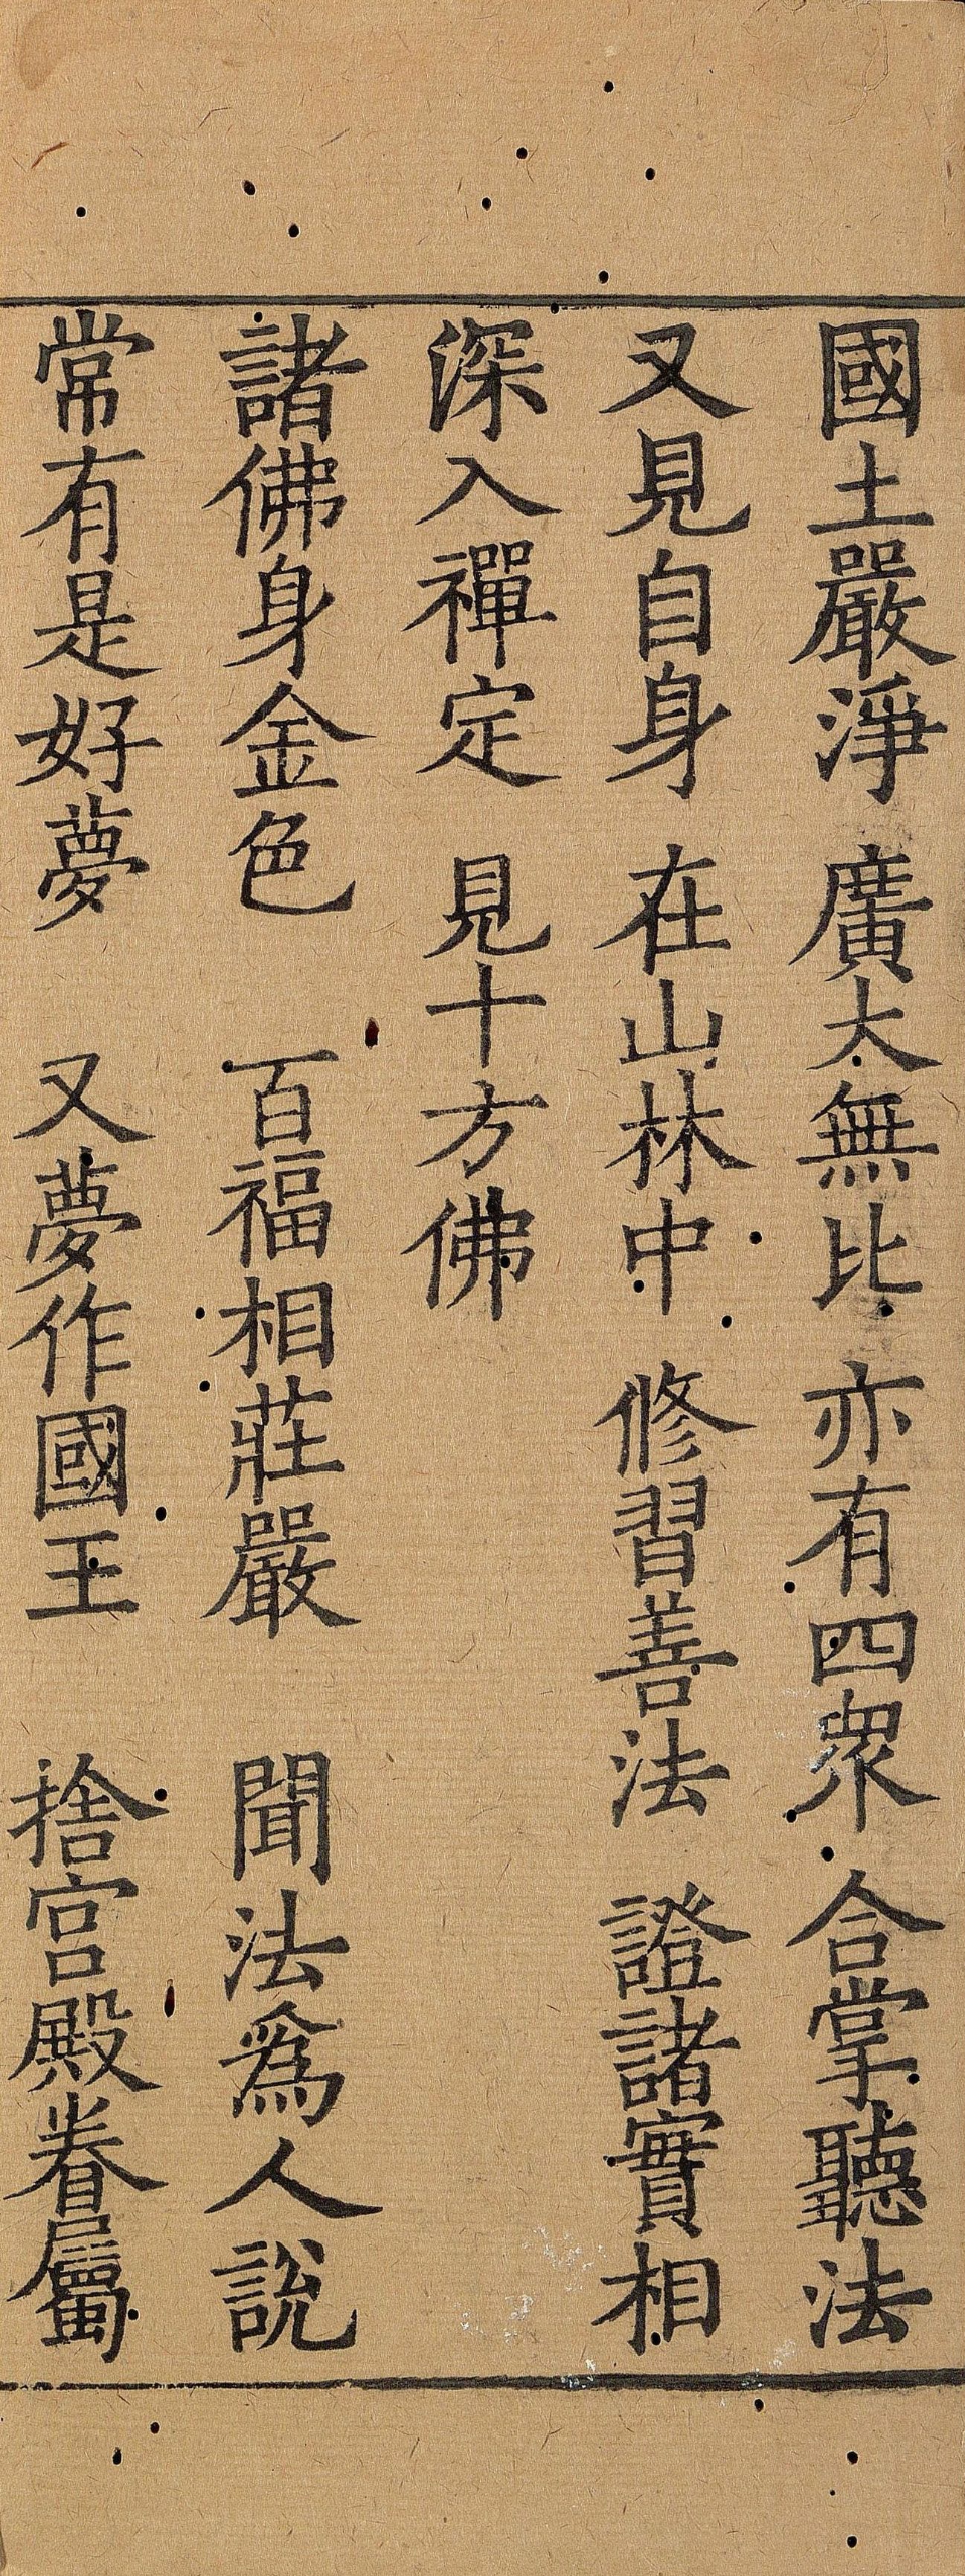 國土嚴淨　廣大無比　亦有四眾　合掌聽法
又見自身　在山林中　修習善法　證諸實相
深入禪定　見十方佛
諸佛身金色　百福相莊嚴　聞法爲人說
常有是好夢　又夢作國王　捨宮殿眷屬